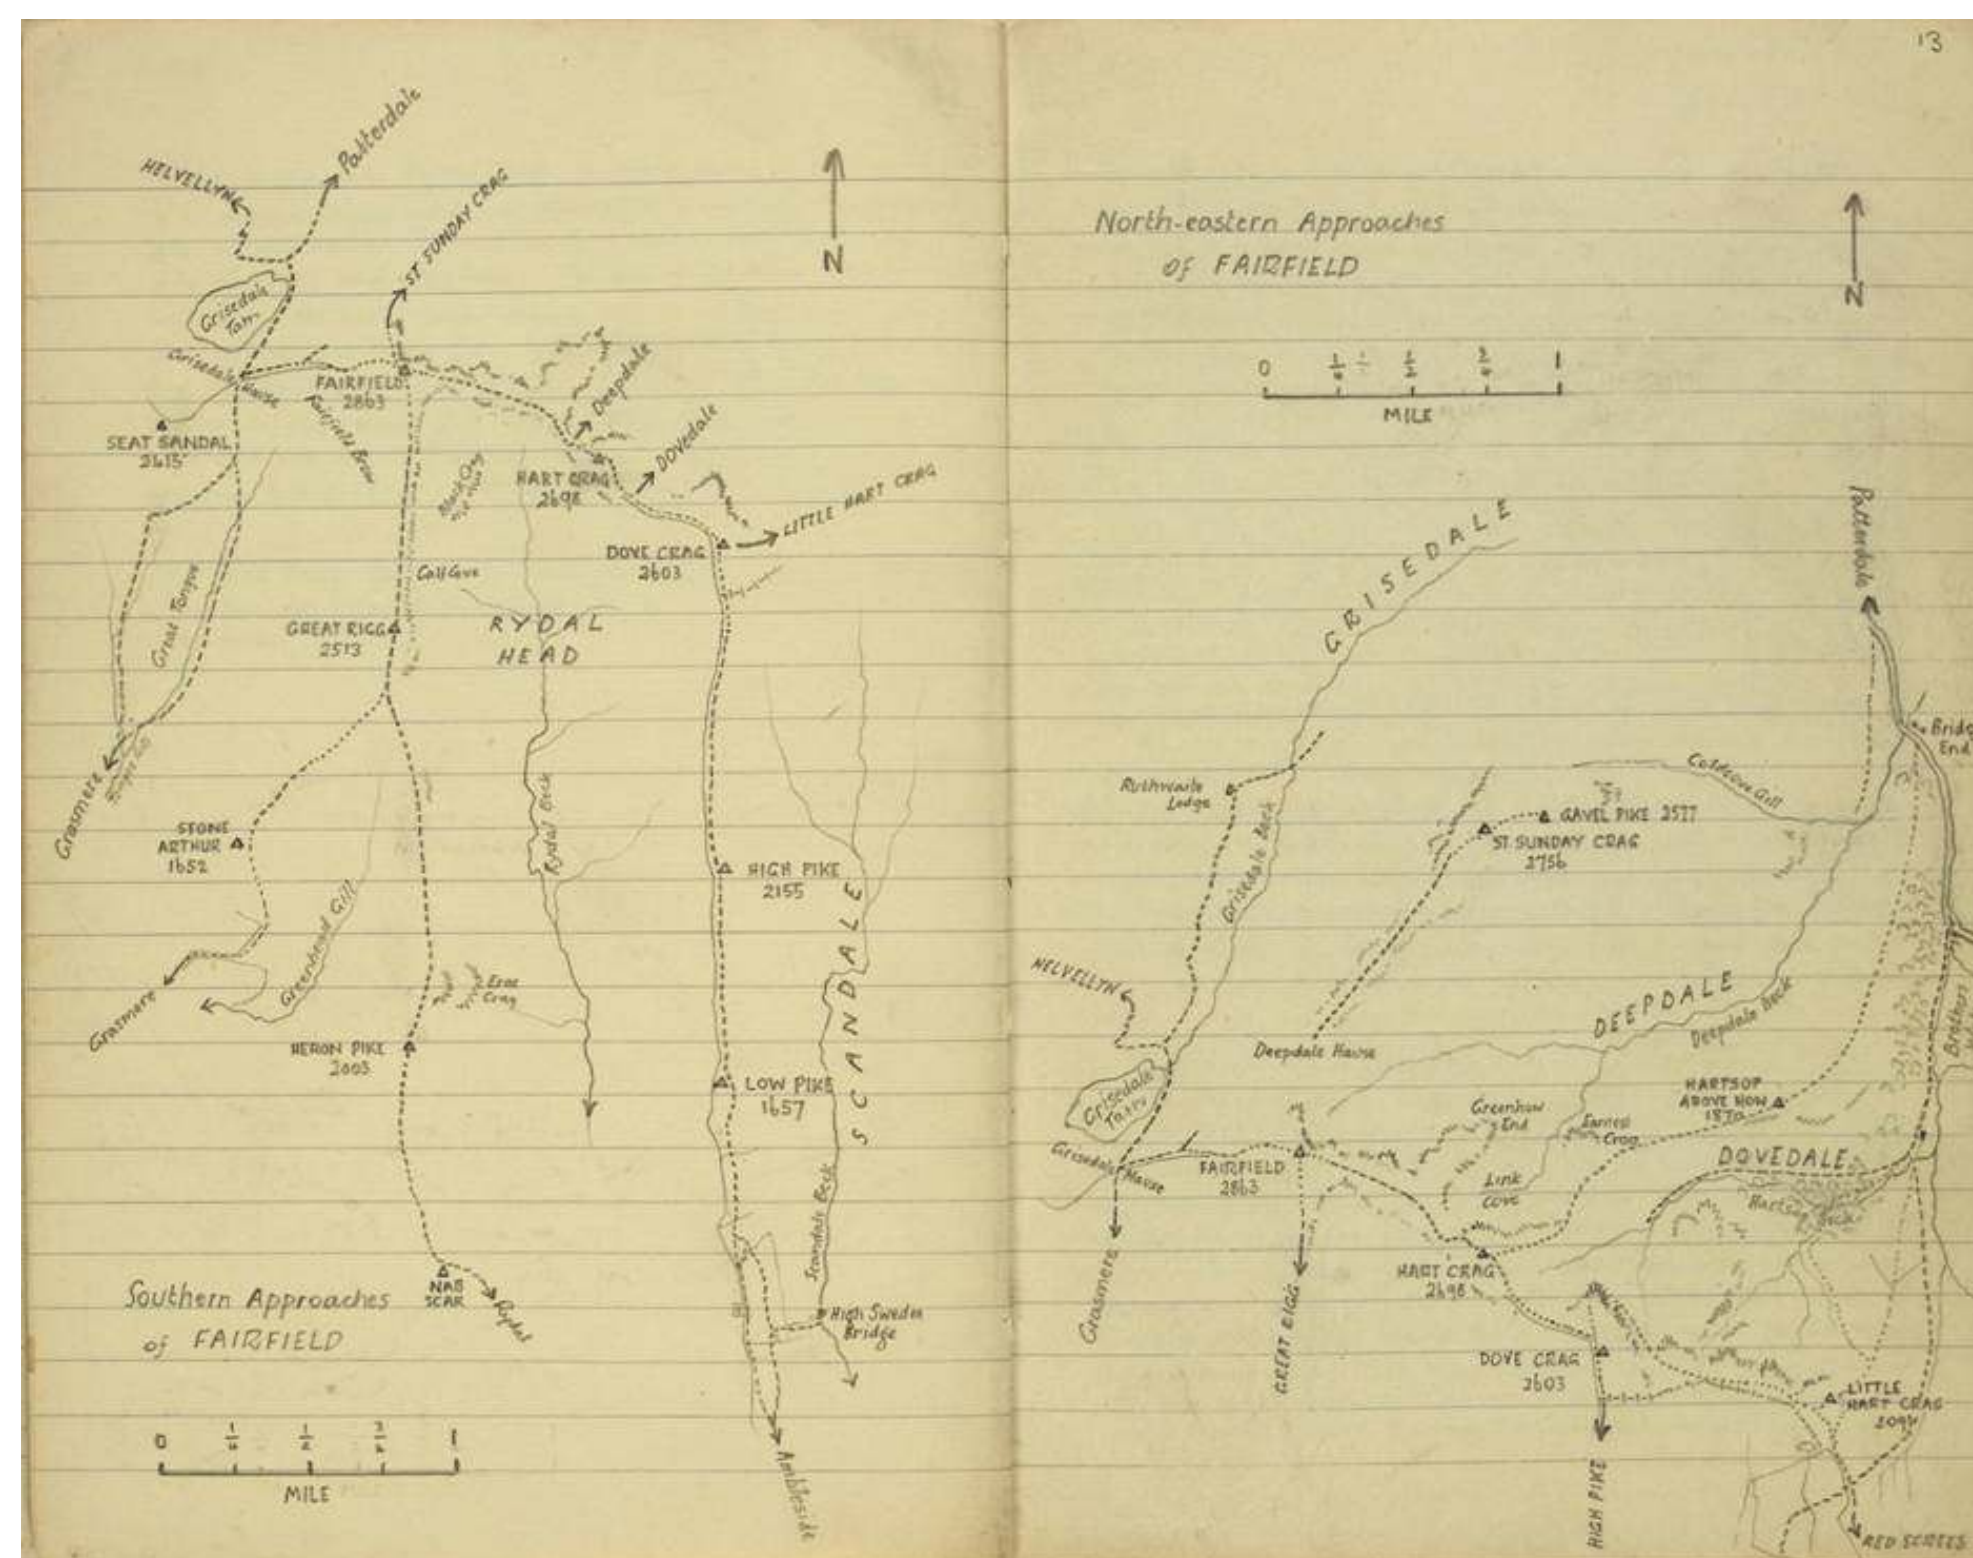 HELVELLYN
Patterdale
ST SUNDAY CRAG
N
Grisedale
Tarn
Grisedale Hause
FAIRFIELD
2863
Fairfield Brow
Deepdale
Dovedale
SEAT SANDAL
2415
HART CRAG
2698
LITTLE HART CRAG
DOVE CRAG
2603
Great Tongue
Calf Cove
GREAT RIGG
2513
RYDAL
HEAD
Grasmere
STONE
ARTHUR
1652
Rydal Beck
HIGH PIKE
2155
Greenhead Gill
SCANDALE
Erne
Crag
Grasmere
HERON PIKE
2003
LOW PIKE
1657
Scandale Beck
NAB
SCAR
Rydal
High Sweden
Bridge
Southern Approaches
of FAIRFIELD
0 1/4 1/2 3/4 1
MILE
Ambleside
13
North-eastern Approaches
of FAIRFIELD
N
0 1/4 1/2 3/4 1
MILE
Patterdale
GRISEDALE
Bridg
End
Ruthwaite
Lodge
Coldcove Gill
GAVEL PIKE 2577
ST SUNDAY CRAG
2756
Grisedale Beck
HELVELLYN
DEEPDALE
Deepdale Beck
Deepdale Hause
Brothers
Grisedale
Tarn
HARTSOP
ABOVE HOW
1870
Greenhow
End
Earnest
Crag
Grisedale Hause
FAIRFIELD
2863
Link
Cove
DOVEDALE
Hartsop Beck
Grasmere
GREAT RIGG
HART CRAG
2698
DOVE CRAG
2603
LITTLE
HART CRAG
2091
HIGH PIKE
RED SCREES